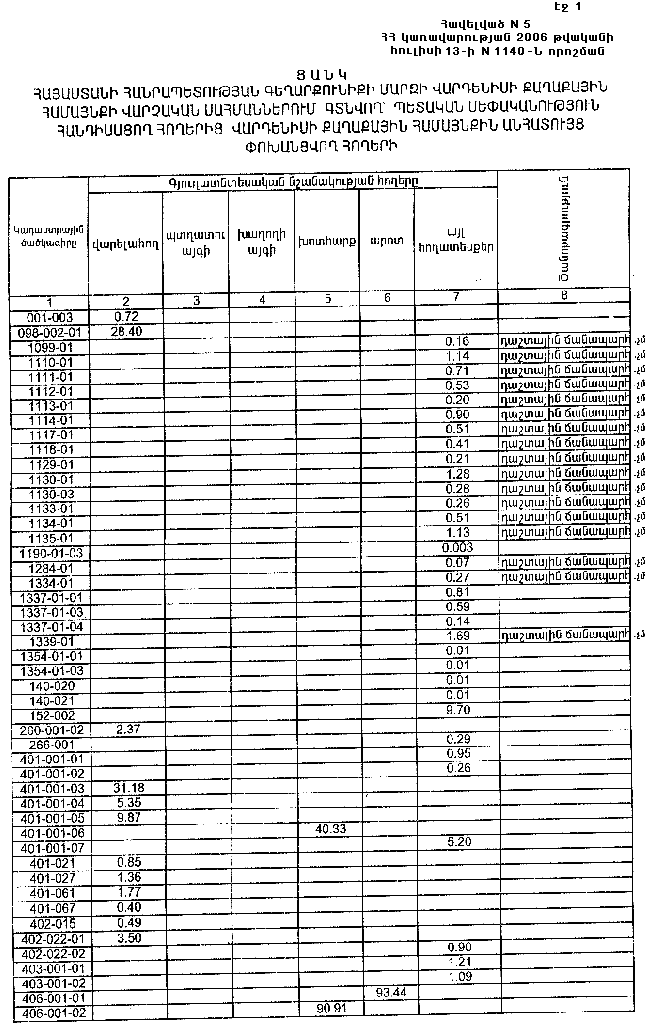 էջ 1
Հավելված N 5
ՀՀ կառավարության 2006 թվականի
հուլիսի 13-ի N 1140-Ն որոշման
Ց Ա Ն Կ
ՀԱՅԱՍՏԱՆԻ ՀԱՆՐԱՊԵՏՈՒԹՅԱՆ ԳԵՂԱՐՔՈՒՆԻՔԻ ՄԱՐԶԻ ՎԱՐԴԵՆԻՍԻ ՔԱՂԱՔԱՅԻՆ
ՀԱՄԱՅՆՔԻ ՎԱՐՉԱԿԱՆ ՍԱՀՄԱՆՆԵՐՈՒՄ ԳՏՆՎՈՂ՝ ՊԵՏԱԿԱՆ ՍԵՓԱԿԱՆՈՒԹՅՈՒՆ
ՀԱՆԴԻՍԱՑՈՂ ՀՈՂԵՐԻՑ ՎԱՐԴԵՆԻՍԻ ՔԱՂԱՔԱՅԻՆ ՀԱՄԱՅՆՔԻՆ ԱՆՀԱՏՈՒՅՑ
ՓՈԽԱՆՑՎՈՂ ՀՈՂԵՐԻ
Գյուղատնտեսական նշանակության հողերը
Կադաստրային ծածկագիրը վարելահող պտղատու այգի խաղողի այգի խոտհարք արոտ այլ հողատեսքեր Ծանոթագրություն
1 2 3 4 5 6 7 8
001-003 0.72
098-002-01 28.40
1099-01 0.16 դաշտային ճանապարհ
1110-01 1.14 դաշտային ճանապարհ
1111-01 0.71 դաշտային ճանապարհ
1112-01 0.53 դաշտային ճանապարհ
1113-01 0.20 դաշտային ճանապարհ
1114-01 0.90 դաշտային ճանապարհ
1117-01 0.51 դաշտային ճանապարհ
1118-01 0.41 դաշտային ճանապարհ
1129-01 0.21 դաշտային ճանապարհ
1130-01 1.28 դաշտային ճանապարհ
1130-03 0.28 դաշտային ճանապարհ
1133-01 0.26 դաշտային ճանապարհ
1134-01 0.51 դաշտային ճանապարհ
1135-01 1.13 դաշտային ճանապարհ
1190-01-03 0.003
1284-01 0.07 դաշտային ճանապարհ
1334-01 0.27 դաշտային ճանապարհ
1337-01-01 0.81
1337-01-03 0.59
1337-01-04 0.14
1339-01 1.69 դաշտային ճանապարհ
1354-01-01 0.01
1354-01-03 0.01
140-020 0.01
140-021 0.01
152-002 9.70
260-001-02 2.37
266-001 0.29
401-001-01 0.95
401-001-02 0.26
401-001-03 31.18
401-001-04 5.35
401-001-05 9.87
401-001-06 40.33
401-001-07 5.20
401-021 0.85
401-027 1.36
401-061 1.77
401-067 0.40
402-015 0.49
402-022-01 3.50
402-022-02 0.90
403-001-01 1.21
403-001-02 1.09
406-001-01 93.44
406-001-02 90.91